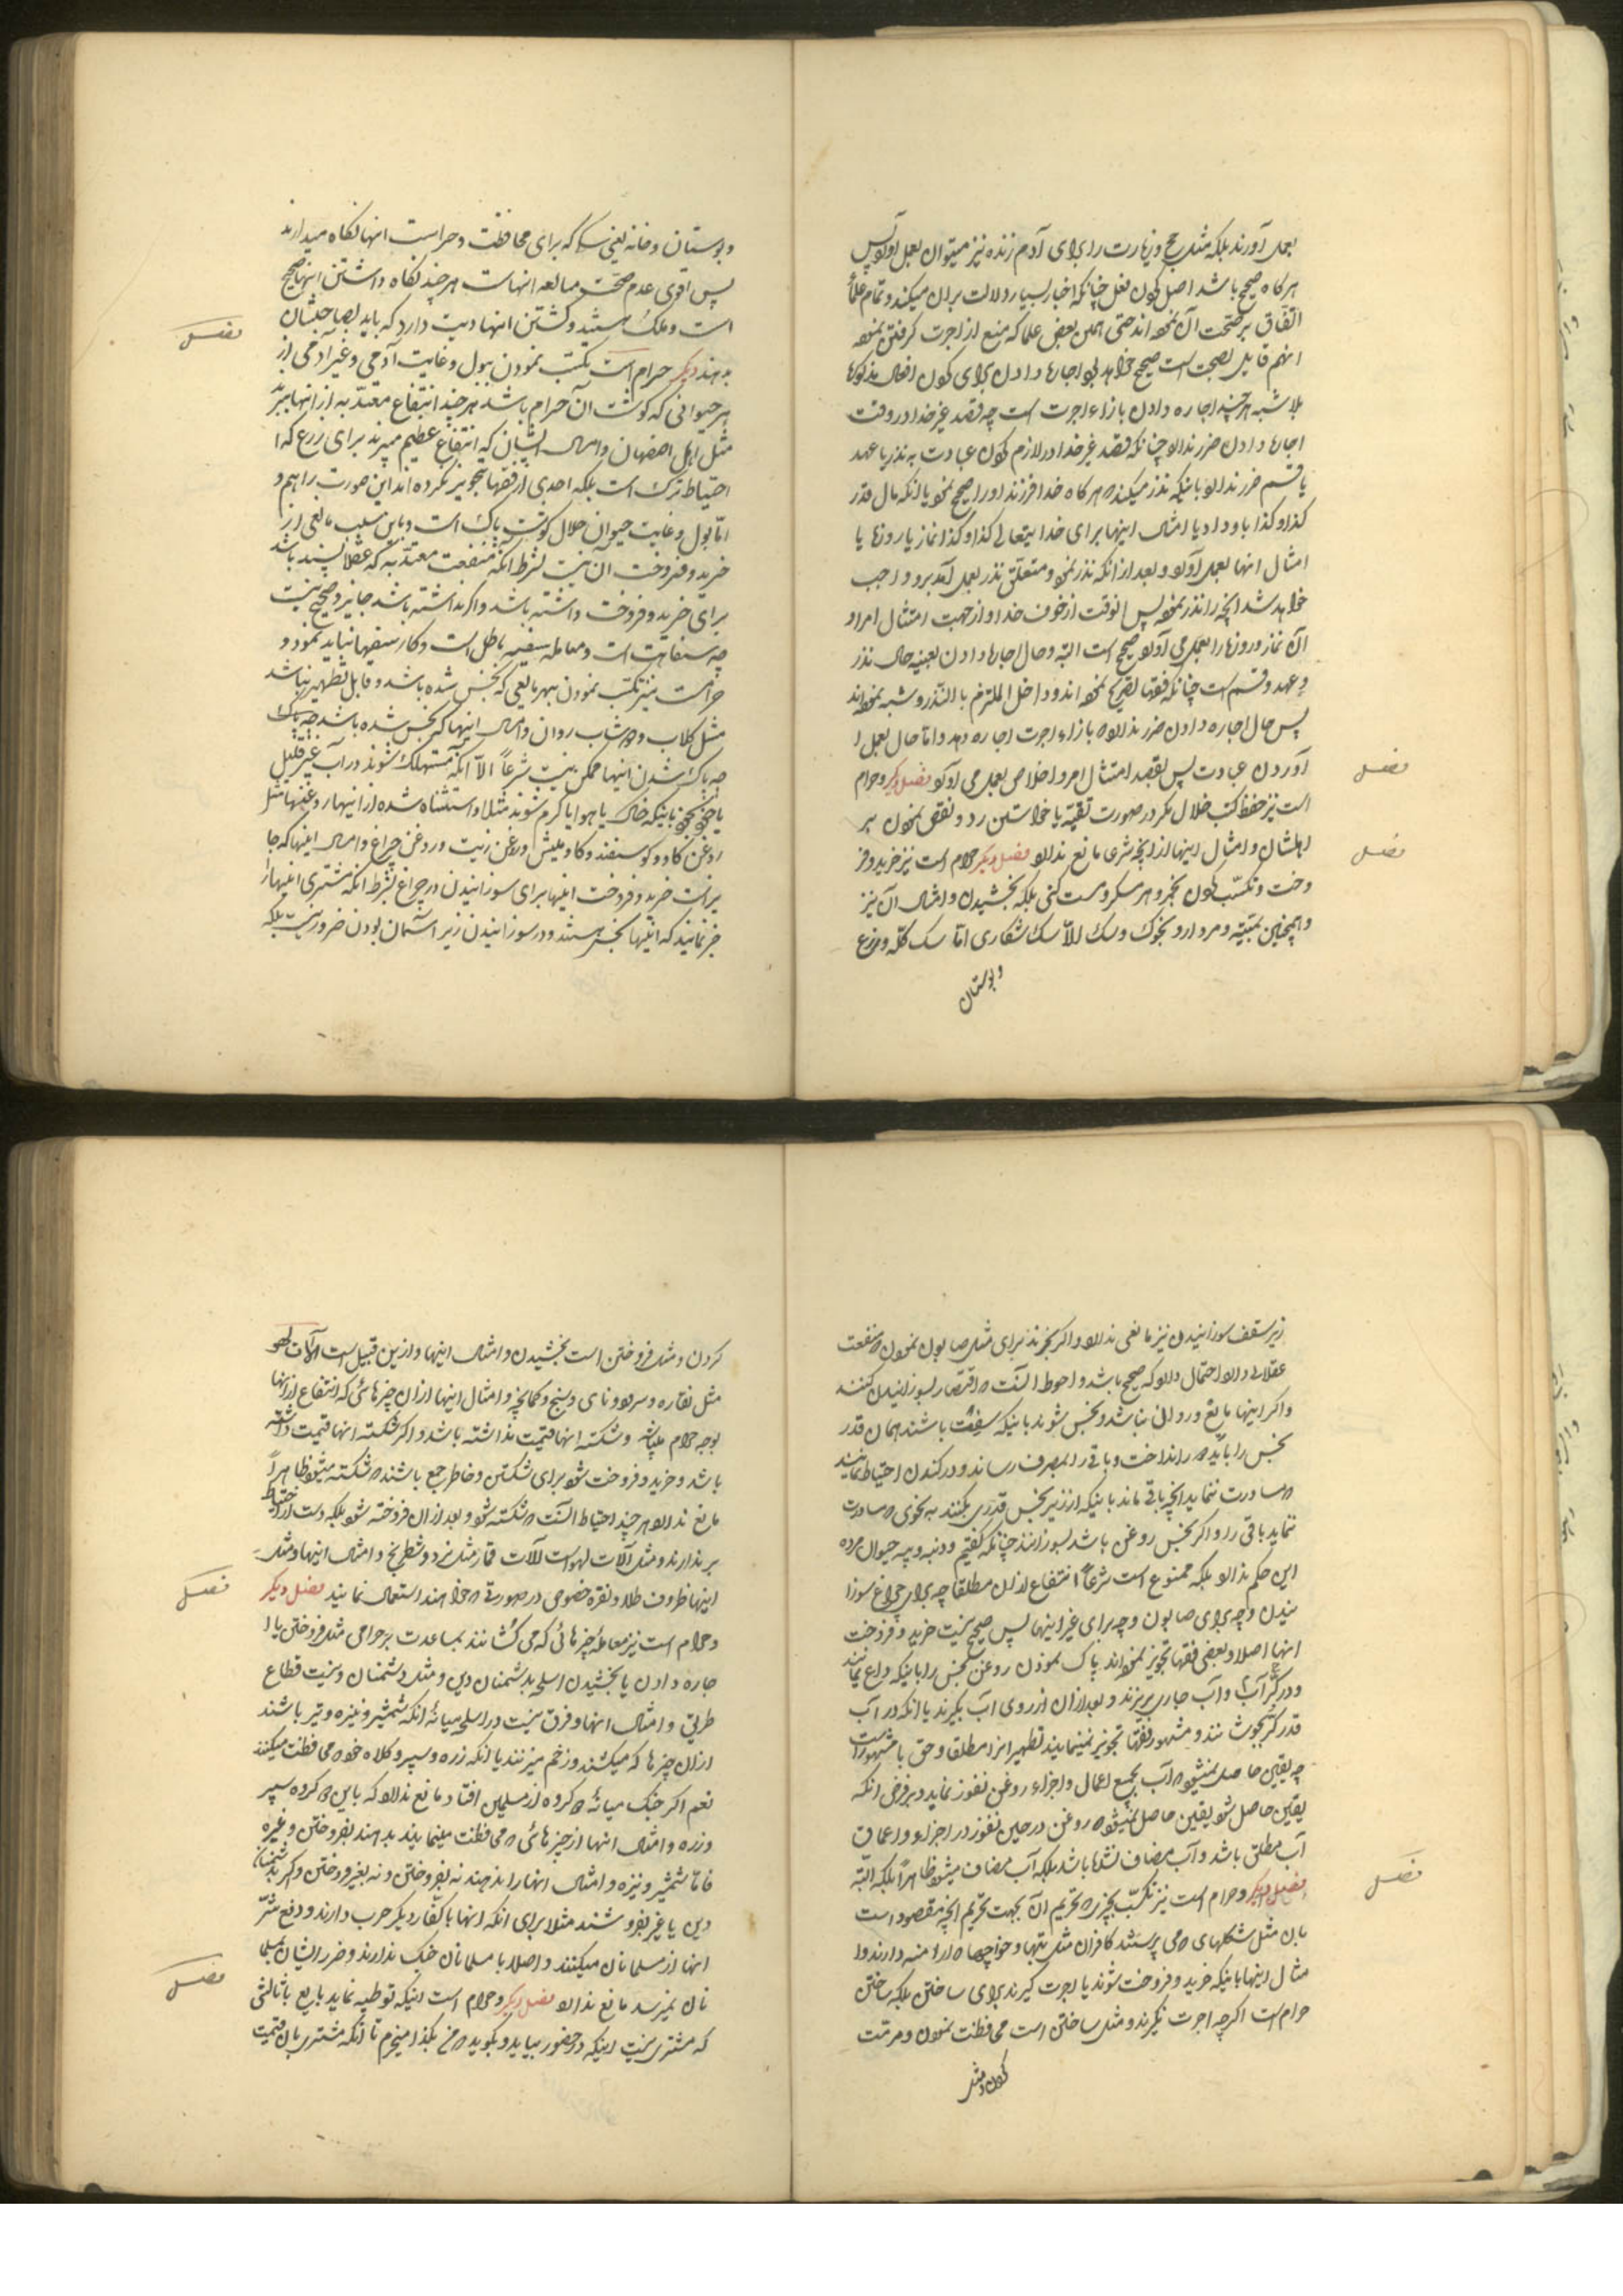 بعمل آورند بلکه مثل حج و زیارت را برای آدم زنده نیز میتوان بعمل آورد پس
هرکاه صحیح باشد اصل فعل چنانکه اخبار بسیار دلالت بران میکند و تمام علما
اتفاق بر صحت آن نموده اند حتی همین بعض علما که منع از اجرت کرفتن نموده
انهم قایل بصحت است صحیح خواهد بود اجاره دادن برای کردن افعال مذکوره
بلا شبهه هر چند اجاره دادن بازاء اجرت است چه قصد غیر خدا در وقت
اجاره دادن ضرر ندارد چنانکه قصد غیر خدا در لازم کردن عبادت به نذر یا عهد
یا قسم ضرر ندارد باینکه نذر میکند که هرکاه خدا فرزند او را صحیح نمود یا انکه مال قدر
کذا و کذا باو داد یا امثال اینها برای خدا یتعالی کذا و کذا نماز یا روزه یا
امثال انها بعمل آورد و بعد از انکه نذر نمود و متعلق نذر بعمل آمد برو واجب
خواهد شد انچه را نذر نموده پس انوقت از خوف خدا و از جهت امتثال امر او
آن نماز و روزه را بعمل می آورد صحیح است البته و حال اجاره دادن بعینه حال نذر
و عهد و قسم است چنانکه فقها تصریح نموده اند و داخل الملتزم بالنذر و شبهه نموده اند
پس حال اجاره دادن ضرر ندارد که بازاء اجرت اجاره دهد و اما حال بعمل
آوردن عبادت پس بقصد امتثال امر و اخلاص بعمل می آورد فصل دیکر و حرام
است نیز حفظ کتب ضلال مکر در صورت تقیه یا خواستن رد و نقض نمودن بر
اهلشان و امثال اینها از انچه شرعی مانع ندارد فصل دیکر حرام است نیز خرید و فر
وخت و تکسب کردن بخمر و هر مسکر و مست کنی بلکه بخشیدن و امثال آن نیز
و همچنین بمیته و مردار و بخوک و سک الا سک شکاری اما سک کله و زرع
و بوستان
فصل
فصل
و بوستان و خانه یعنی سکها که برای محافظت و حراست انها نکاه میدارند
پس اقوی عدم صحت معامله انهاست هر چند نکاه داشتن انها صحیح
است و ملک هستند و کشتن انها دیت دارد که باید بصاحبشان
بدهند دیکر حرام است تکسب نمودن ببول و غایت آدمی و غیر ادمی از
هر حیوانی که کوشت آن حرام باشد هر چند انتفاع معتد به از انها ببرند
مثل اهل اصفهان و امثال ایشان که انتفاع عظیم میبرند برای زرع که
احتیاط ترک است بلکه احدی از فقها تجویز نکرده اند این صورت را هم و
اما بول و غایت حیوان حلال کوشت پاک است و باین سبب مانعی از
خرید و فروخت ان نیست بشرط انکه منفعت معتد به که عقلا پسند باشد
برای خرید و فروخت داشته باشد و اکر نداشته باشد جایز و صحیح نیست
چه سفاهت است و معامله سفیه باطل است و کار سفیها نباید نمود و
حرامست نیز تکسب نمودن بهر مایعی که نجس شده باشد و قابل تطهیر نباشد
مثل کلاب و دوشاب روان و امثال اینها که نجس شده باشد چه پاک
چه پاک شدن اینها ممکن نیست شرعاً الا آنکه مستهلک شوند در آب غیر قلیل
یا باینکه خاک یا هوا یا کرم شوند مثلا و استثناء شده از اینها روغنها مثل
روغن کاو و کوسفند و کاومیش و روغن زیت و روغن چراغ و امثال اینها که جا
یز است خرید و فروخت اینها برای سوزانیدن در چراغ بشرط انکه مشتری اینها را
خبر نمایند که اینها نجس هستند و در سوزانیدن زیر آسمان بودن ضرور نیست بلکه
فصل
زیر سقف سوزانیدن نیز مانعی ندارد و اکر بخرند برای مثل صابون نمودن که منفعت
عقلائی دارد احتمال دارد که صحیح باشد و احوط انست که اقتصار بسوزانیدن کنند
و اکر اینها مایع و روانی نباشند و نجس شوند باینکه سفت باشند همان قدر
نجس را باید که انداخت و باقی را بمصرف رساند و در کندن احتیاط نمایند
که سرایت ننماید انچه باقی ماند باینکه از زیر نجس قدری بکنند بنحوی که سرایت
ننماید باقی را و اکر نجس روغن باشد بسوزانند چنانکه کفتیم و دنبه و پیه حیوان مرده
این حکم ندارد بلکه ممنوع است شرعاً انتفاع از ان مطلقا چه برای چراغ سوزا
نیدن و چه برای صابون و چه برای غیر اینها پس صحیح نیست خرید و فروخت
انها اصلا و بعضی فقها تجویز نموده اند پاک نمودن روغن نجس را باینکه داغ نمایند
و در کر آب و آب جاری بریزند و بعد از ان از روی آب بکیرند یا انکه در آب
قدر کر بجوشانند و مشهور فقها تجویز نمینمایند تطهیر انرا مطلقا و حق با مشهور است
چه یقین حاصل نمیشود که آب بجمیع اعماق و اجزاء روغن نفوذ نماید و بر فرض انکه
یقین حاصل شود یقین حاصل نمیشود که روغن در حین نفوذ در اجزاء و اعماق
آب مطلق باشد و آب مضاف نشده باشد بلکه آب مضاف میشود ظاهراً بلکه البته
فصل دیکر و حرام است نیز تکسب بچیزی که تحریم ان بجهت تحریم انچه مقصود است
بان مثل شکلهای که می پرستند کافران مثل بتها و چوبها که و
مثال اینها باینکه خرید و فروخت شوند یا اجرت کیرند برای ساختن بلکه ساختن
حرام است اکرچه اجرت نکیرند و مثل ساختن است محافظت نمودن و مرمت
کردن و مثل
فصل
کردن و مثل فروختن است بخشیدن و امثال اینها و ازین قبیل است آلات لهو
مثل نقاره و سرود و نای و سنج و کمانچه و امثال اینها از ان چیزهائی که انتفاع از انها
بوجه حرام میباشد و شکسته انها قیمت نداشته باشد و اکر شکسته انها قیمت داشته
باشد و خرید و فروخت شود برای شکستن و خاطر جمع باشند که شکسته میشود ظاهراً
مانع ندارد هر چند احتیاط انست که شکسته شود و بعد از ان فروخته شود بلکه دست از احتیاط
بر ندارند و مثل آلات لهو است آلات قمار مثل نرد و شطرنج و امثال اینها و مثل
اینها ظروف طلا و نقره خصوص در صورتی که خواهند استعمال نمایند فصل دیکر
و حرام است نیز معامله چیزهائی که می کشانند بمساعدت بر حرامی مثل فروختن یا
جاره دادن یا بخشیدن اسلحه بدشمنان دین و مثل دشمنان دینست قطاع
طریق و امثال انها و فرق نیست در اسلحه میانه آنکه شمشیر و نیزه و تیر باشند
از ان چیزها که میکشند و زخم میزنند یا انکه زره و سپر و کلاه خود که محافظت میکنند
نعم اکر جنک میانه دو کروه از مسلمین افتاد مانع ندارد که باین دو کروه سپر
و زره و امثال انها از چیزهائی که محافظت مینمایند بدهند بفروختن و غیره
فاما شمشیر و نیزه و امثال انها را ندهند نه بفروختن و نه بغیر فروختن و اکر بدشمنان
دین یا غیر بفروشند مثلا برای انکه انها با کفار دیکر حرب دارند و دفع شر
انها از مسلمانان میکنند و اصلا با مسلمانان جنک ندارند و ضرر ایشان بمسلما
نان نمیرسد مانع ندارد فصل دیکر و حرام است اینکه توطیه نماید بایع با ثالثی
که مشتری نیست اینکه در حضور بیاید و بکوید که من بکذا میخرم تا آنکه مشتری بان قیمت
فصل
فصل